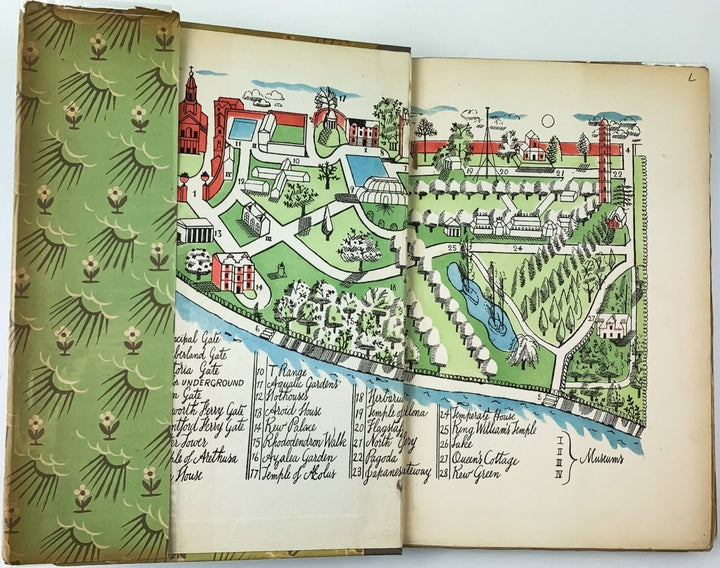 cipal Gate
berland Gate
toria Gate
UNDERGROUND
n Gate
worth Ferry Gate
tford Ferry Gate
er Tower
ple of Arethusa
House
10 T. Range
11 Aquatic Gardens
12 Hothouses
13 Aroid House
14 Kew Palace
15 Rhododendron Walk
16 Azalea Garden
17 Temple of Æolus
18 Herbariu
19 Temple of
20 Flagstaff
21 North
22 Pagoda
23 Japanese
24 Temperate House
25 King William's Temple
26 Lake
27 Queen's Cottage
28 Kew Green
I
II
III
IV
Museums